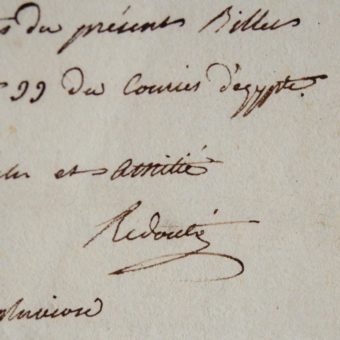 du présent Billet
99 du Courier d'egypte.
et amitié
Redouté
pluviose